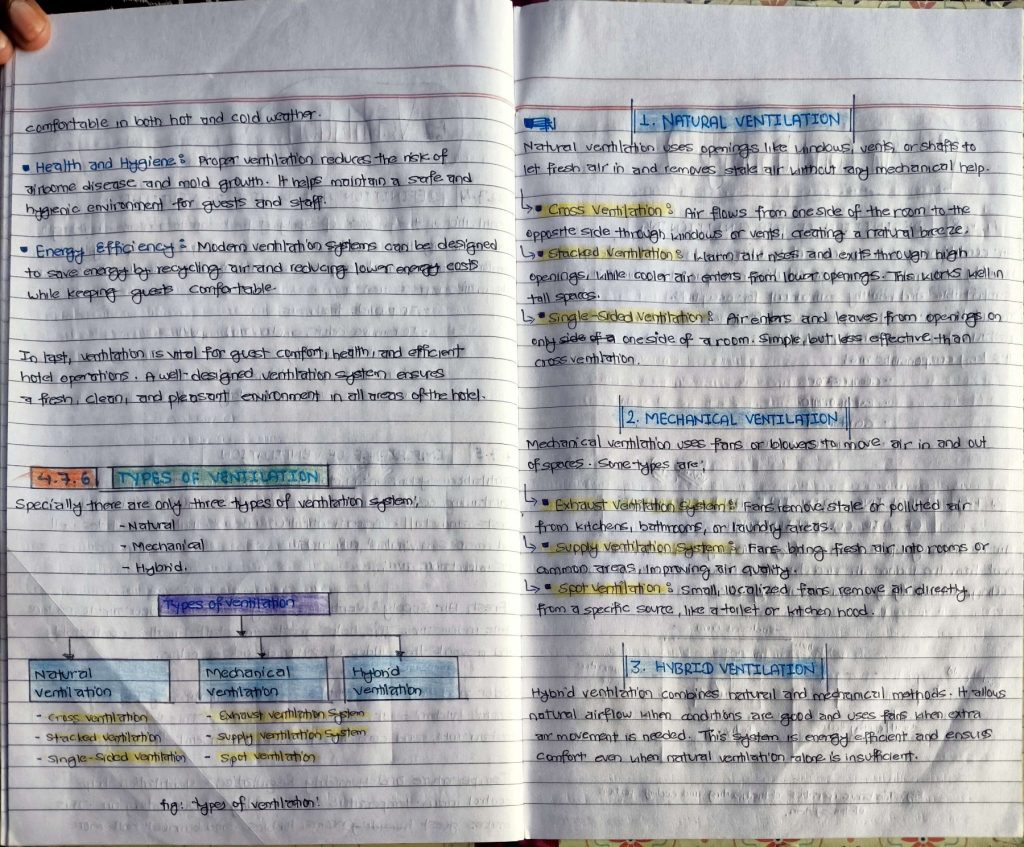 comfortable in both hot and cold weather.
▪ Health and Hygiene: Proper ventilation reduces the risk of
airborne disease and mold growth. It helps maintain a safe and
hygienic environment for guests and staff.
▪ Energy Efficiency: Modern ventilation systems can be designed
to save energy by recycling air and reducing lower energy costs
while keeping guests comfortable.
In last, ventilation is vital for guest comfort, health, and efficient
hotel operations. A well-designed ventilation system ensures
a fresh, clean, and pleasant environment in all areas of the hotel.
4.7.6 TYPES OF VENTILATION
Specially there are only three types of ventilation system;
- Natural
- Mechanical
- Hybrid.
Types of ventilation
Natural Mechanical Hybrid
ventilation ventilation ventilation
- Cross ventilation - Exhaust ventilation System
- Stacked ventilation - Supply ventilation System
- Single-Sided ventilation - Spot ventilation
fig: Types of ventilation
1. NATURAL VENTILATION
Natural ventilation uses openings like windows, vents, or shafts to
let fresh air in and removes stale air without any mechanical help.
↳ ▪ Cross Ventilation: Air flows from one side of the room to the
opposite side through windows or vents, creating a natural breeze.
↳ ▪ Stacked Ventilation: Warm air rises and exits through high
openings, while cooler air enters from lower openings. This works well in
tall spaces.
↳ ▪ Single-Sided Ventilation: Air enters and leaves from openings on
only side of a one side of a room. Simple, but less effective than
cross ventilation.
2. MECHANICAL VENTILATION
Mechanical ventilation uses fans or blowers to move air in and out
of spaces. Some types are;
↳ ▪ Exhaust Ventilation System: Fans remove stale or polluted air
from kitchens, bathrooms, or laundry areas.
↳ ▪ Supply Ventilation System: Fans bring fresh air into rooms or
common areas, improving air quality.
↳ ▪ Spot Ventilation: Small, localized fans remove air directly
from a specific source, like a toilet or kitchen hood.
3. HYBRID VENTILATION
Hybrid ventilation combines natural and mechanical methods. It allows
natural airflow when conditions are good and uses fans when extra
air movement is needed. This system is energy efficient and ensures
comfort even when natural ventilation alone is insufficient.